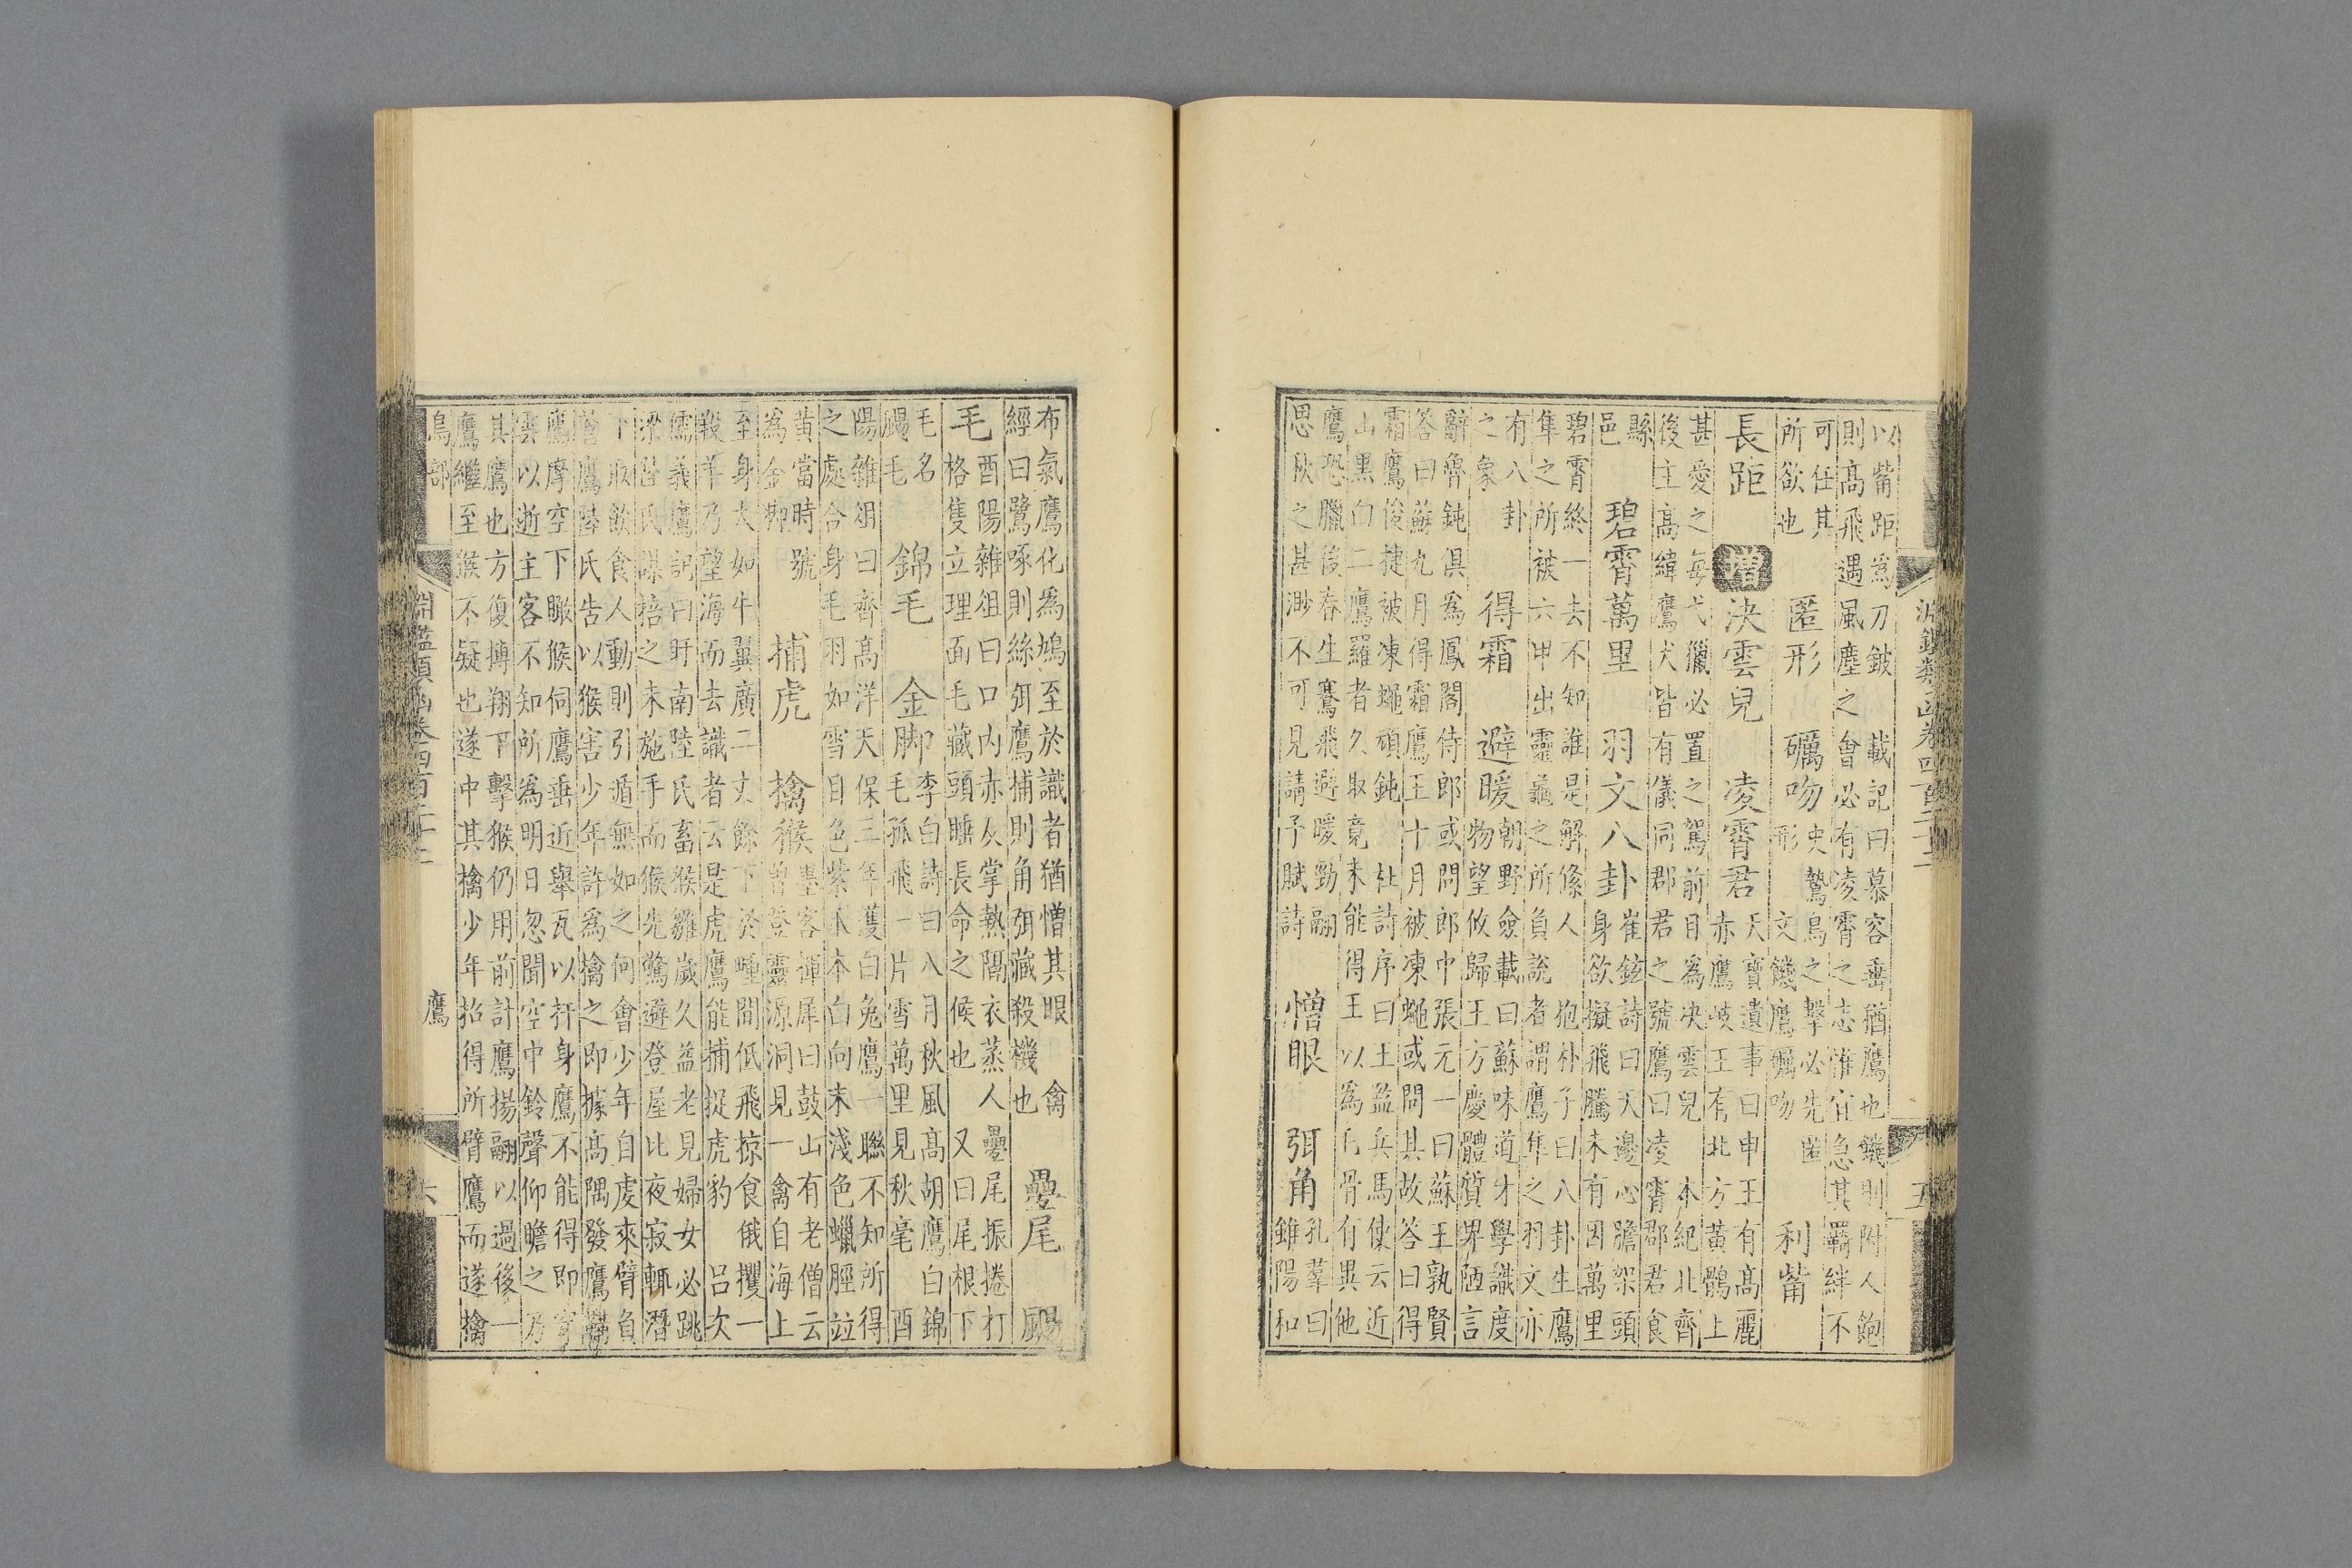 淵鑑類函卷四百二十二 五
以觜距為刀鈹 載記曰慕容垂猶鷹也饑則附人飽
則高飛遇風塵之會必有凌霄之志惟宜急其羈絆不
可任其
所欲也
匿形 礪吻
史鷙鳥之擊必先匿
形 文饑鷹礪吻
利觜
長距 增 決雲兒 凌霄君
天寶遺事曰申王有高麗
赤鷹岐王有北方黃鶻上
甚愛之每弋獵必置之駕前目為決雲兒 本紀北齊
後主高緯鷹犬皆有儀同郡君之號鷹曰凌霄郡君食
縣
邑
碧霄萬里 羽文八卦
崔鉉詩曰天邊心膽架頭
身欲擬飛騰未有因萬里
碧霄終一去不知誰是解絛人 抱朴子曰八卦生鷹
隼之所被六甲出靈龜之所負說者謂鷹隼之羽文亦
有八卦
之象
得霜 避暖
朝野僉載曰蘇味道才學識度
物望攸歸王方慶體質界陋言
辭魯鈍俱為鳳閣侍郎或問郎中張元一曰蘇王孰賢
答曰蘇九月得霜鷹王十月被凍蠅或問其故答曰得
霜鷹俊捷被凍蠅頑鈍 杜詩序曰王監兵馬使云近
山黑白二鷹羅者久取竟未能得王以為毛骨有異他
鷹恐臘後春生騫飛避暖勁翮
思秋之甚渺不可見請予賦詩
憎眼 弭角
孔羣曰
雖陽和
布氣鷹化為鳩至於識者猶憎其眼 禽
經曰鷺啄則絲弭鷹捕則角弭藏殺機也
疊尾 颺
毛
酉陽雜俎曰口內赤反掌熱隔衣蒸人疊尾振捲打
格隻立理面毛藏頭睡長命之候也 又曰尾根下
毛名
颺毛
錦毛 金脚
李白詩曰八月秋風高胡鷹白錦
毛孤飛一片雪萬里見秋毫 酉
陽雜俎曰齊高洋天保三年獲白兔鷹一聯不知所得
之處合身毛羽如雪目色紫爪本白向末淺色蠟脛竝
黃當時號
為金脚
捕虎 擒猴
墨客揮犀曰鼓山有老僧云
曾登靈源洞見一禽自海上
至身大如牛翼廣二丈餘下於疃間低飛掠食俄攫一
羖羊乃望海而去識者云是虎鷹能捕捉虎豹 呂次
儒義鷹記曰盱南陸氏畜猴雛歲久益老見婦女必跳
梁陸氏謀掊之未施手而猴先驚避登屋比夜寂輒潛
下取飲食人動則引遁無如之何會少年自虔來臂負
蒼鷹陸氏告以猴害少年許為擒之即據高隅發鷹鞲
鷹摩空下瞰猴伺鷹垂近舉瓦以扞身鷹不能得即穿
雲以逝主客不知所為明日忽聞空中鈴聲仰瞻之乃
其鷹也方復摶翔下擊猴仍用前計鷹揚翮以過後一
鷹繼至猴不疑也遂中其擒少年招得所臂鷹而遂擒
鳥部 淵鑑類函卷四百二十二 鷹 六